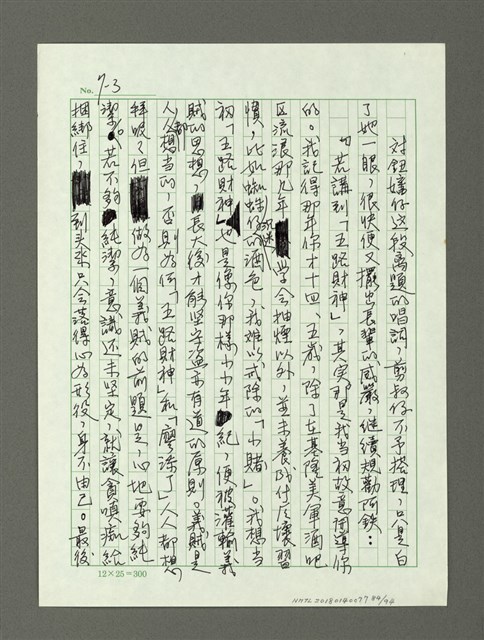 No. 7-3
對鈕孃仔這般離題的唱詞，剪叔仔不予搭理，只是白
了她一眼，很快便又擺出長輩的威嚴，繼續規勸阿欽：
「若講到「五路財神」，其實那是我当初故意誤導你
的。我記得那年你才十四、五歲，除了在基隆美軍酒吧
区流浪那几年學会抽煙以外，並未養成什広壞習
慣，比如蜘蛛仔的沉迷酒色，我难以戒除的「小賭」。我想当
初「五路財神」也是像你那樣小小年紀，便被灌輸義
賊的思想，長大後才能坚守盜亦有道的原則。義賊是
人人都想当的，否則為何「五路財神」和「廖添丁」人人都想
拜吸？但做為一個義賊的前題是，心地要夠純
潔。若不夠純潔，意識还未坚定，就讓貪嗔痴給
捆綁住，到头來只会落得心為形役，身不由己。最後
12×25=300
NMTL20180140077 84/94